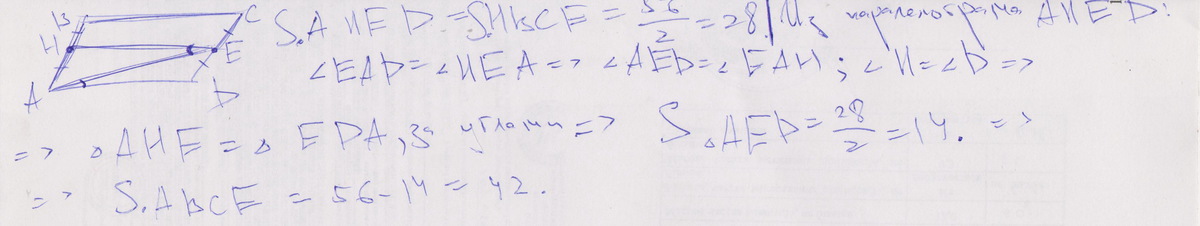 B C
H E
A D
S.AHED = S.HBCE = 56/2 = 28. Из паралелограма AHED:
∠EAD = ∠HEA => ∠AED = ∠EAH; ∠H = ∠D =>
=> △AHE = △EDA, за углами => S△AED = 28/2 = 14. =>
=> S.ABCE = 56-14 = 42.